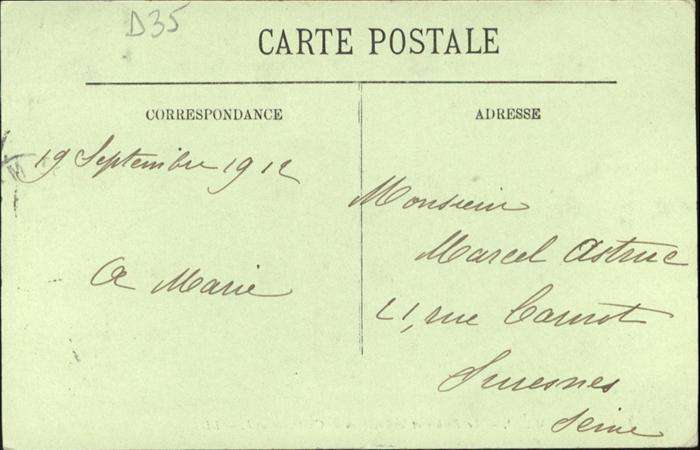 D35
CARTE POSTALE
CORRESPONDANCE
19 Septembre 1912
A Marie
ADRESSE
Monsieur
Marcel Astruc
21, rue Carnot
Suresnes
Seine